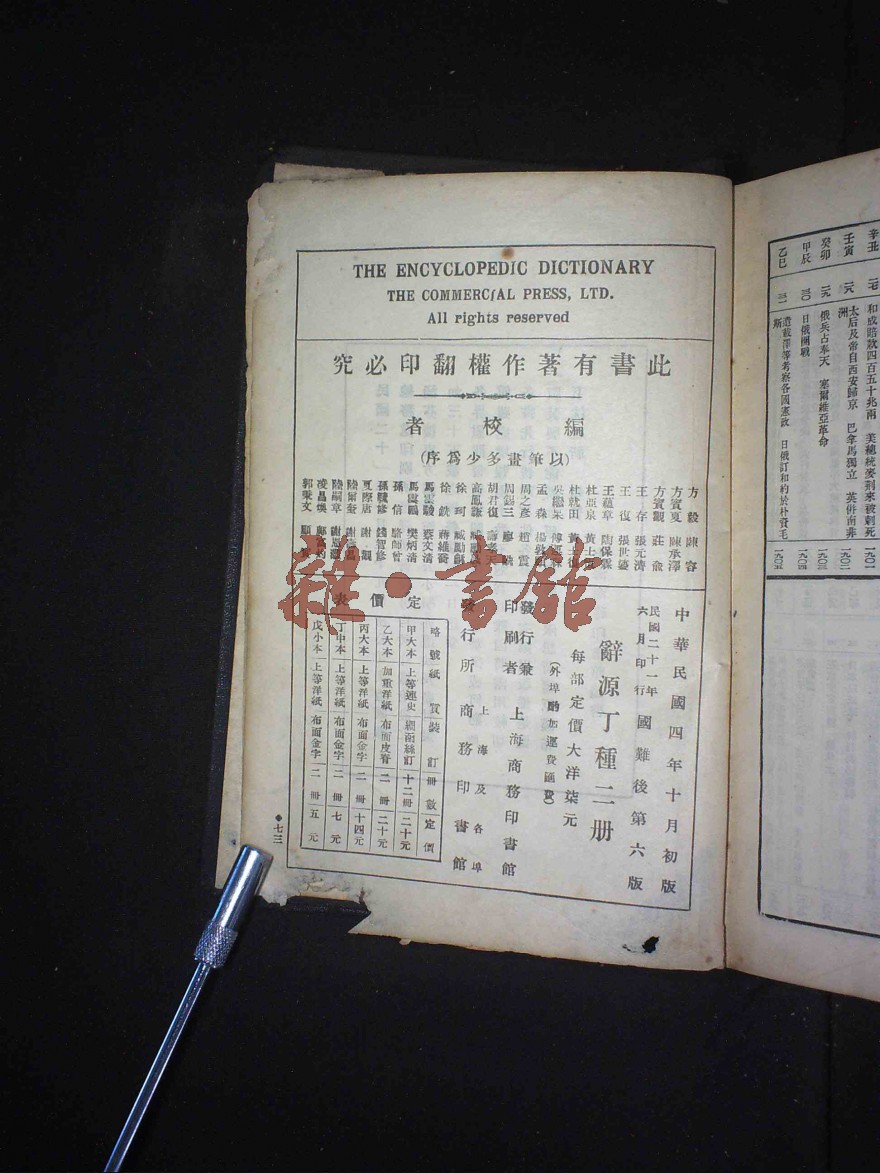 THE ENCYCLOPEDIC DICTIONARY
THE COMMERCIAL PRESS, LTD.
All rights reserved
此書有著作權翻印必究
編校者
(以筆畫多少為序)
方毅 陳容
方賓夏 陳承澤
方賓觀 莊俞
王存 張元濟
王復 張世鎏
王蘊章 陶保霖
杜亞泉
杜就田
吳繼杲
孟森
周之彥 趙震
周錫三
胡君復
高鳳謙
徐珂
徐銑 蔣維喬
蔡文清
樊炳清
孫信 駱師曾
孫毓修 錢智修
夏際唐 謝觀
陸爾奎
陸嗣章
凌昌煥
郭秉文
中華民國四年十月初版
民國二十一年六月印行
國難後第六版
辭源丁種二册
每部定價大洋柒元
(外埠酌加運費匯費)
發行兼印刷者 上海商務印書館
發行所 上海及各埠 商務印書館
定價表
略號 紙質 裝訂 册數 定價
甲大本 上等連史 綢面絲訂 十二冊 二十元
乙大本 加重洋紙 布面皮脊 二冊 二十元
丙大本 上等洋紙 布面金字 二冊 十四元
丁中本 上等洋紙 布面金字 二冊 七元
戊小本 上等洋紙 布面金字 二冊 五元
七三
辛丑 和成賠款四百五十兆兩 美總統麥荊來被刺死 一九〇一
壬寅 太后及帝自西安歸京 巴拿馬獨立 英併南非洲 一九〇二
癸卯 俄兵占奉天 塞爾維亞革命 一九〇三
甲辰 三〇 日俄開戰 一九〇四
乙巳 三一 遣載澤等考察各國憲政 日俄訂和約於朴資毛斯 一九〇五
雜·書館